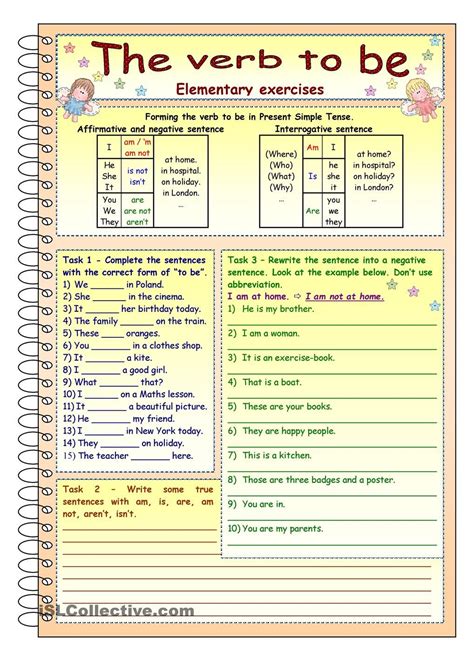 The verb to be
Elementary exercises
Forming the verb to be in Present Simple Tense.
Affirmative and negative sentence
I
am / 'm
am not
at home.
in hospital.
on holiday.
in London.
...
He
She
It
is not
isn't
You
We
They
are
are not
aren't
Interrogative sentence
(Where)
(Who)
(What)
(Why)
...
Am
I
at home?
in hospital?
on holiday?
in London?
...
Is
he
she
it
Are
you
we
they
Task 1 - Complete the sentences
with the correct form of "to be".
1) We ______ in Poland.
2) She ______ in the cinema.
3) It ______ her birthday today.
4) The family ______ on the train.
5) These ______ oranges.
6) You ______ in a clothes shop.
7) It ______ a kite.
8) I ______ a good girl.
9) What ______ that?
10) I ______ on a Maths lesson.
11) It ______ a beautiful picture.
12) He ______ my friend.
13) I ______ in New York today.
14) They ______ on holiday.
15) The teacher ______ here.
Task 2 - Write some true
sentences with am, is, are, am
not, aren't, isn't.
Task 3 - Rewrite the sentence into a negative
sentence. Look at the example below. Don't use
abbreviation.
I am at home. ⇨ I am not at home.
1) He is my brother.
2) I am a woman.
3) It is an exercise-book.
4) That is a boat.
5) These are your books.
6) They are happy people.
7) This is a kitchen.
8) Those are three badges and a poster.
9) You are in.
10) You are my parents.
iSLCollective.com